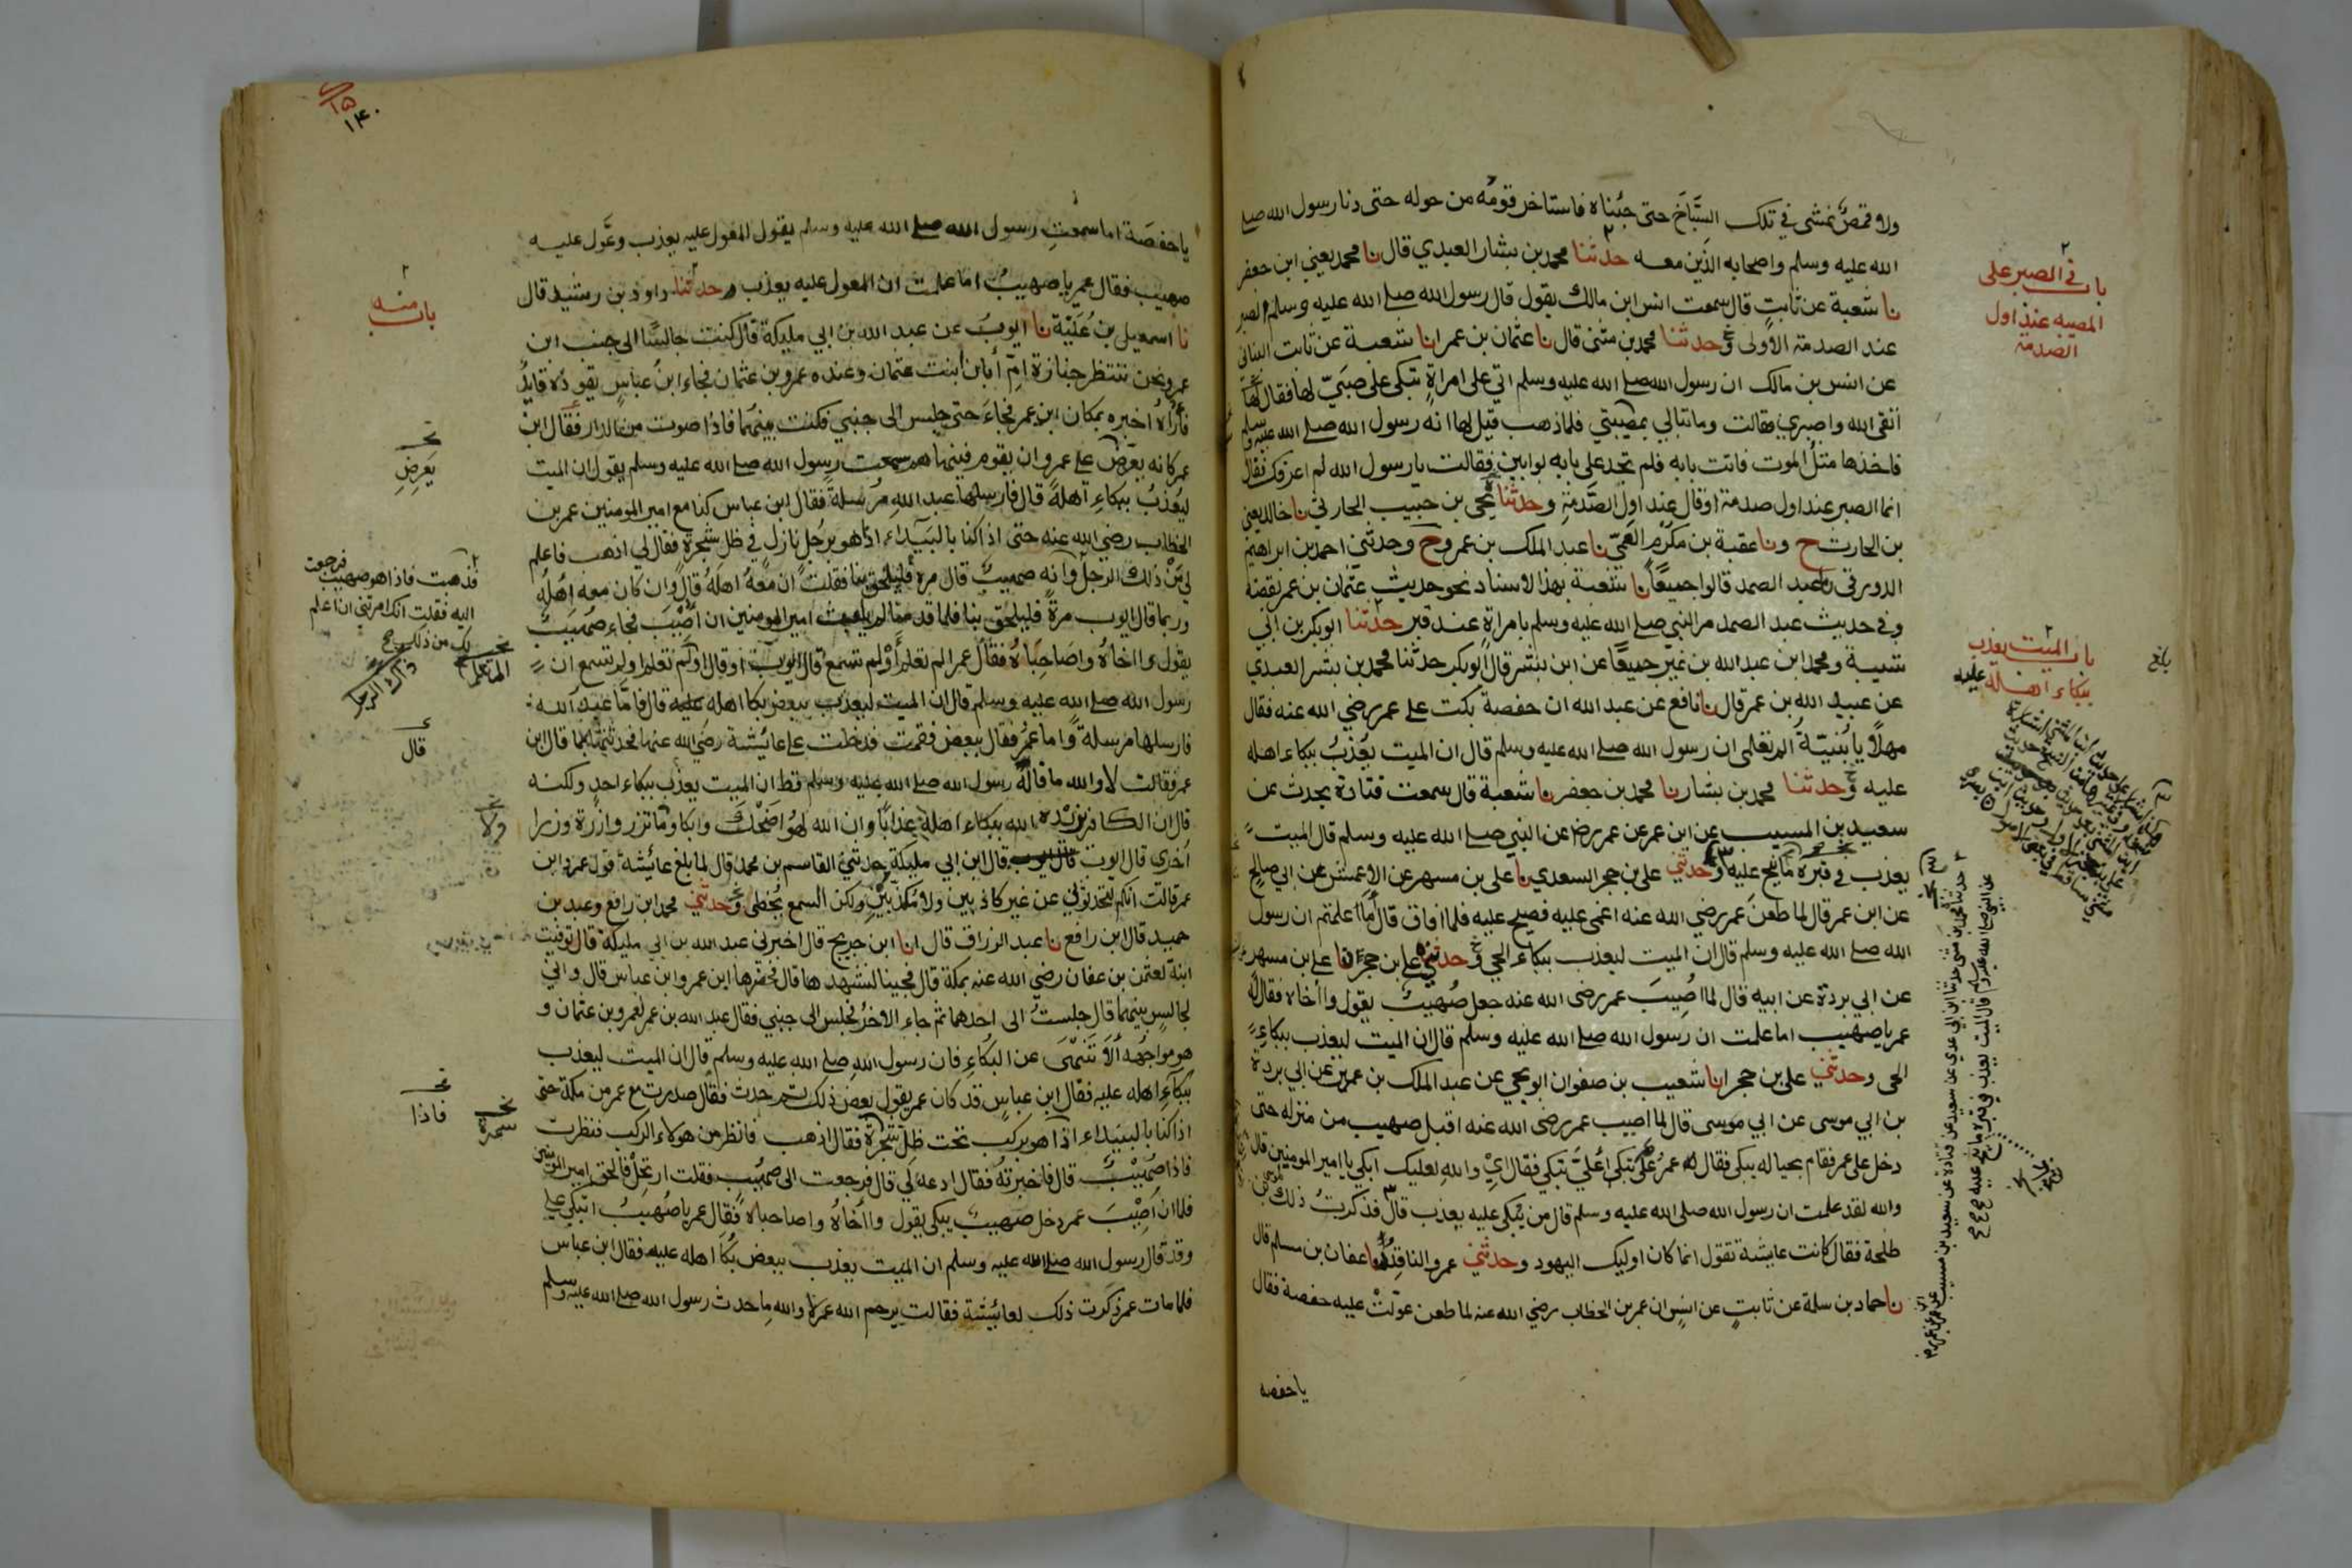 ولا قمص نمشي في تلك السباخ حتى جئناه فاستاخر قومه من حوله حتى دنا رسول الله صلى
الله عليه وسلم واصحابه الذين معه حدثنا محمد بن بشار العبدي قال نا محمد يعني ابن جعفر
نا شعبة عن ثابت قال سمعت انس ابن مالك يقول قال رسول الله صلى الله عليه وسلم الصبر
عند الصدمة الاولى وحدثنا محمد بن مثنى قال نا عثمان بن عمر انا شعبة عن ثابت البناني
عن انس بن مالك ان رسول الله صلى الله عليه وسلم اتى على امراة تبكى على صبي لها فقال لها
اتقى الله واصبري فقالت وما تبالي بمصيبتي فلما ذهب قيل لها انه رسول الله صلى الله عليه وسلم
فاخذها مثل الموت فاتت بابه فلم تجد على بابه بوابين فقالت يا رسول الله لم اعرفك فقال
انما الصبر عند اول صدمة او قال عند اول الصدمة وحدثنا يحيى بن حبيب الحارثي نا خالد يعني
بن الحارث ح ونا عقبة بن مكرم العمي نا عبد الملك بن عمرو ح وحدثني احمد بن ابراهيم
الدورقي نا عبد الصمد قالوا جميعا نا شعبة بهذا الاسناد نحو حديث عثمان بن عمر بقصته
وفي حديث عبد الصمد مر النبي صلى الله عليه وسلم بامراة عند قبر حدثنا ابو بكر بن ابي
شيبة ومحمد ابن عبد الله بن نمير جميعا عن ابن بشر قال ابو بكر حدثنا محمد بن بشر العبدي
عن عبيد الله بن عمر قال نا نافع عن عبد الله ان حفصة بكت على عمر رضي الله عنه فقال
مهلا يا بنية الم تعلمى ان رسول الله صلى الله عليه وسلم قال ان الميت يعذب ببكاء اهله
عليه وحدثنا محمد بن بشار نا محمد بن جعفر نا شعبة قال سمعت قتادة يحدث عن
سعيد بن المسيب عن ابن عمر عن عمر رضا عن النبي صلى الله عليه وسلم قال الميت
يعذب في قبره ما نيح عليه وحدثني على بن حجر السعدي نا على بن مسهر عن الاعمش عن ابي صالح
عن ابن عمر قال لما طعن عمر رضي الله عنه اغمى عليه فصيح عليه فلما افاق قال اما علمتم ان رسول
الله صلى الله عليه وسلم قال ان الميت ليعذب ببكاء الحي وحدثني علي بن حجر نا علي بن مسهر
عن ابي بردة عن ابيه قال لما اصيب عمر رضى الله عنه جعل صهيب يقول وا اخاه فقال له
عمر يا صهيب اما علمت ان رسول الله صلى الله عليه وسلم قال ان الميت ليعذب ببكاء
الحى وحدثني على بن حجر انا شعيب بن صفوان ابو يحيى عن عبد الملك بن عمير عن ابي بردة
بن ابي موسى عن ابي موسى قال لما اصيب عمر رضى الله عنه اقبل صهيب من منزله حتى
دخل على عمر فقام بحياله يبكى فقال له عمر على تبكى اعلى تبكي فقال اي والله لعليك ابكي يا امير المومنين قال
والله لقد علمت ان رسول الله صلى الله عليه وسلم قال من يبكى عليه يعذب قال فذكرت ذلك لموسى بن
طلحة فقال كانت عايشة تقول انما كان اوليك اليهود وحدثني عمرو الناقد نا عفان بن مسلم قال
نا حماد بن سلمة عن ثابت عن انس ان عمر بن الخطاب رضي الله عنه لما طعن عولت عليه حفصة فقال
يا حفصه
باب في الصبر على
المصيبه عند اول
الصدمة
باب الميت يعذب
ببكاء اهله عليه
بلغ
حدثنا محمد بن مثنى حدثنا ابن ابي عدي عن سعيد عن قتادة عن سعيد بن مسيب عن ابن عمر عن عمر رض
عن النبي صلى الله عليه وسلم قال الميت يعذب في قبره ما نيح عليه
١٥
١٤٠
يا حفصة اما سمعت رسول الله صلى الله عليه وسلم يقول المعول عليه يعذب وعول عليه
صهيب فقال عمر يا صهيب اما علمت ان المعول عليه يعذب وحدثنا داود بن رشيد قال
نا اسمعيل بن علية نا ايوب عن عبد الله بن ابي مليكة قال كنت جالسا الى جنب ابن
عمر ونحن ننتظر جنازة ام ابان ابنت عثمان وعنده عمرو بن عثمان فجاء ابن عباس يقوده قايد
فاراه اخبره بمكان ابن عمر فجاء حتى جلس الى جنبي فكنت بينهما فاذا صوت من الدار فقال ابن
عمر كانه يعرض على عمرو ان يقوم فينهاهم سمعت رسول الله صلى الله عليه وسلم يقول ان الميت
ليعذب ببكاء اهله قال فارسلها عبد الله مرسلة فقال ابن عباس كنا مع امير المومنين عمر بن
الخطاب رضي الله عنه حتى اذا كنا بالبيداء اذا هو برجل نازل في ظل شجرة فقال لي اذهب فاعلم
لي من ذلك الرجل وانه صهيب قال مره فليلحق بنا فقلت ان معه اهله قال وان كان معه اهله
وربما قال ايوب مرة فليلحق بنا فلما قدمنا لم يلبث امير المومنين ان اصيب فجاء صهيب
يقول وا اخاه واصاحباه فقال عمر الم تعلم اولم تسمع قال ايوب او قال اولم تعلم اولم تسمع ان
رسول الله صلى الله عليه وسلم قال ان الميت ليعذب ببعض بكا اهله عليه قال فاما عبد الله
فارسلها مرسلة واما عمر فقال ببعض فقمت فدخلت على عائيشة رضي الله عنها فحدثتها بما قال ابن
عمر فقالت لا والله ما قاله رسول الله صلى الله عليه وسلم قط ان الميت يعذب ببكاء احد ولكنه
قال ان الكافر يزيده الله ببكاء اهله عذابا وان الله لهو اضحك وابكا وما تزر وازرة وزر
اخرى قال ايوب قال ابن ابي مليكة حدثني القاسم بن محمد قال لما بلغ عائشة قول عمر وابن
عمر قالت انكم لتحدثوني عن غير كاذبين ولا مكذبين ولكن السمع يخطى وحدثني محمد ابن رافع وعبد بن
حميد قال ابن رافع نا عبد الرزاق قال انا ابن جريج قال اخبرني عبد الله بن ابي مليكة قال توفيت
ابنة لعثمن بن عفان رضي الله عنه بمكة قال فجينا لنشهدها قال فحضرها ابن عمر وابن عباس قال واني
لجالس بينهما قال جلست الى احدهما ثم جاء الاخر فجلس الى جنبي فقال عبد الله بن عمر لعمرو بن عثمان و
هو مواجهه الا تنهى عن البكاء فان رسول الله صلى الله عليه وسلم قال ان الميت ليعذب
ببكاء اهله عليه فقال ابن عباس قد كان عمر يقول بعض ذلك ثم حدث فقال صدرت مع عمر من مكة حتى
اذا كنا بالبيداء اذا هو بركب تحت ظل شجرة فقال اذهب فانظر من هولاء الركب فنظرت
فاذا صهيب قال فاخبرته فقال ادعه لي قال فرجعت الى صهيب فقلت ارتحل فالحق امير المومنين
فلما ان اصيب عمر دخل صهيب يبكى يقول وا اخاه واصاحباه فقال عمر يا صهيب اتبكي علي
وقد قال رسول الله صلى الله عليه وسلم ان الميت يعذب ببعض بكا اهله عليه فقال ابن عباس
فلما مات عمر ذكرت ذلك لعائيشة فقالت يرحم الله عمر لا والله ما حدث رسول الله صلى الله عليه وسلم
باب منه
يعرض
فذهبت فاذا هو صهيب فرجعت
اليه فقلت انك امرتني ان اعلم
لك من ذلك
قال
ولا
فاذا
سمرة